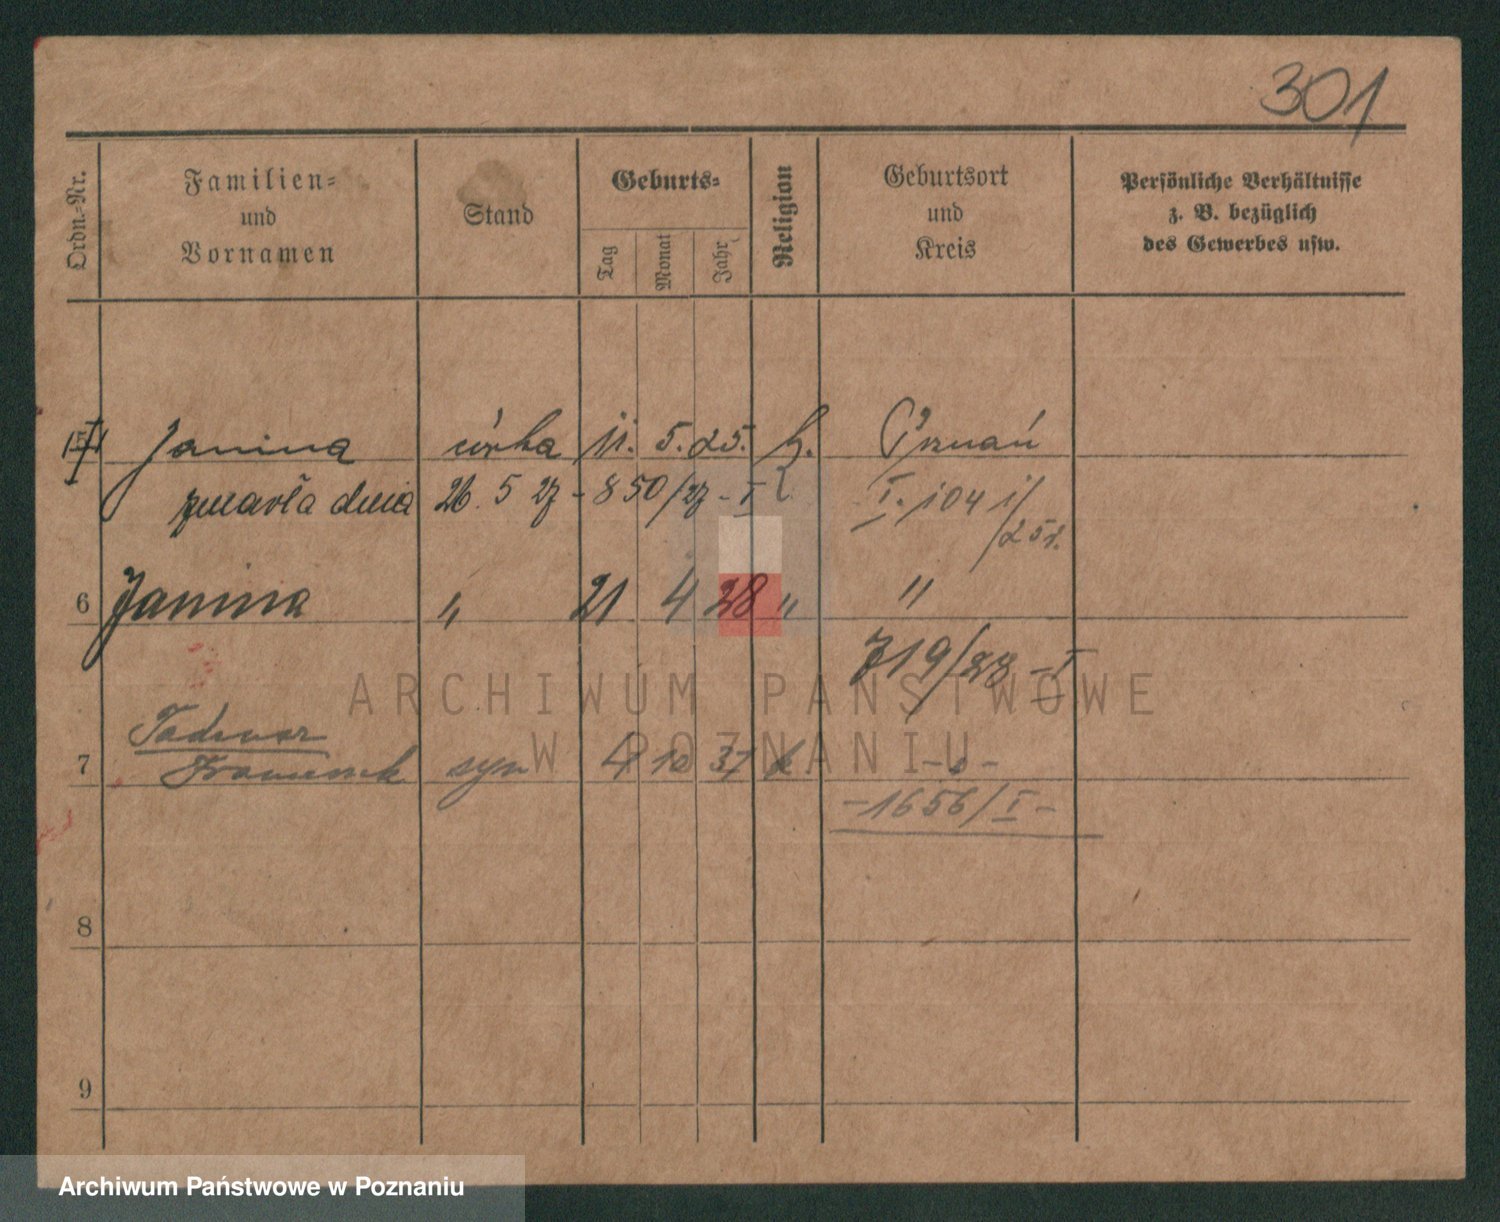 301
Ordn.-Nr.
Familien-
und
Vornamen
Stand
Geburts-
Tag
Monat
Jahr
Religion
Geburtsort
und
Kreis
Persönliche Verhältnisse
z. B. bezüglich
des Gewerbes usw.
Janina córka 11. 5. 25. k. Poznań
zmarła dnia 26. 5 27 - 850/27 - I
I. 1041/
25r.
6 Janina " 21 4 28 " "
719/28 - I
ARCHIWUM PAŃSTWOWE
W POZNANIU
Tadeusz
7 Franciszek syn 4 10 31 k - " -
- 1656/I -
8
9
Archiwum Państwowe w Poznaniu